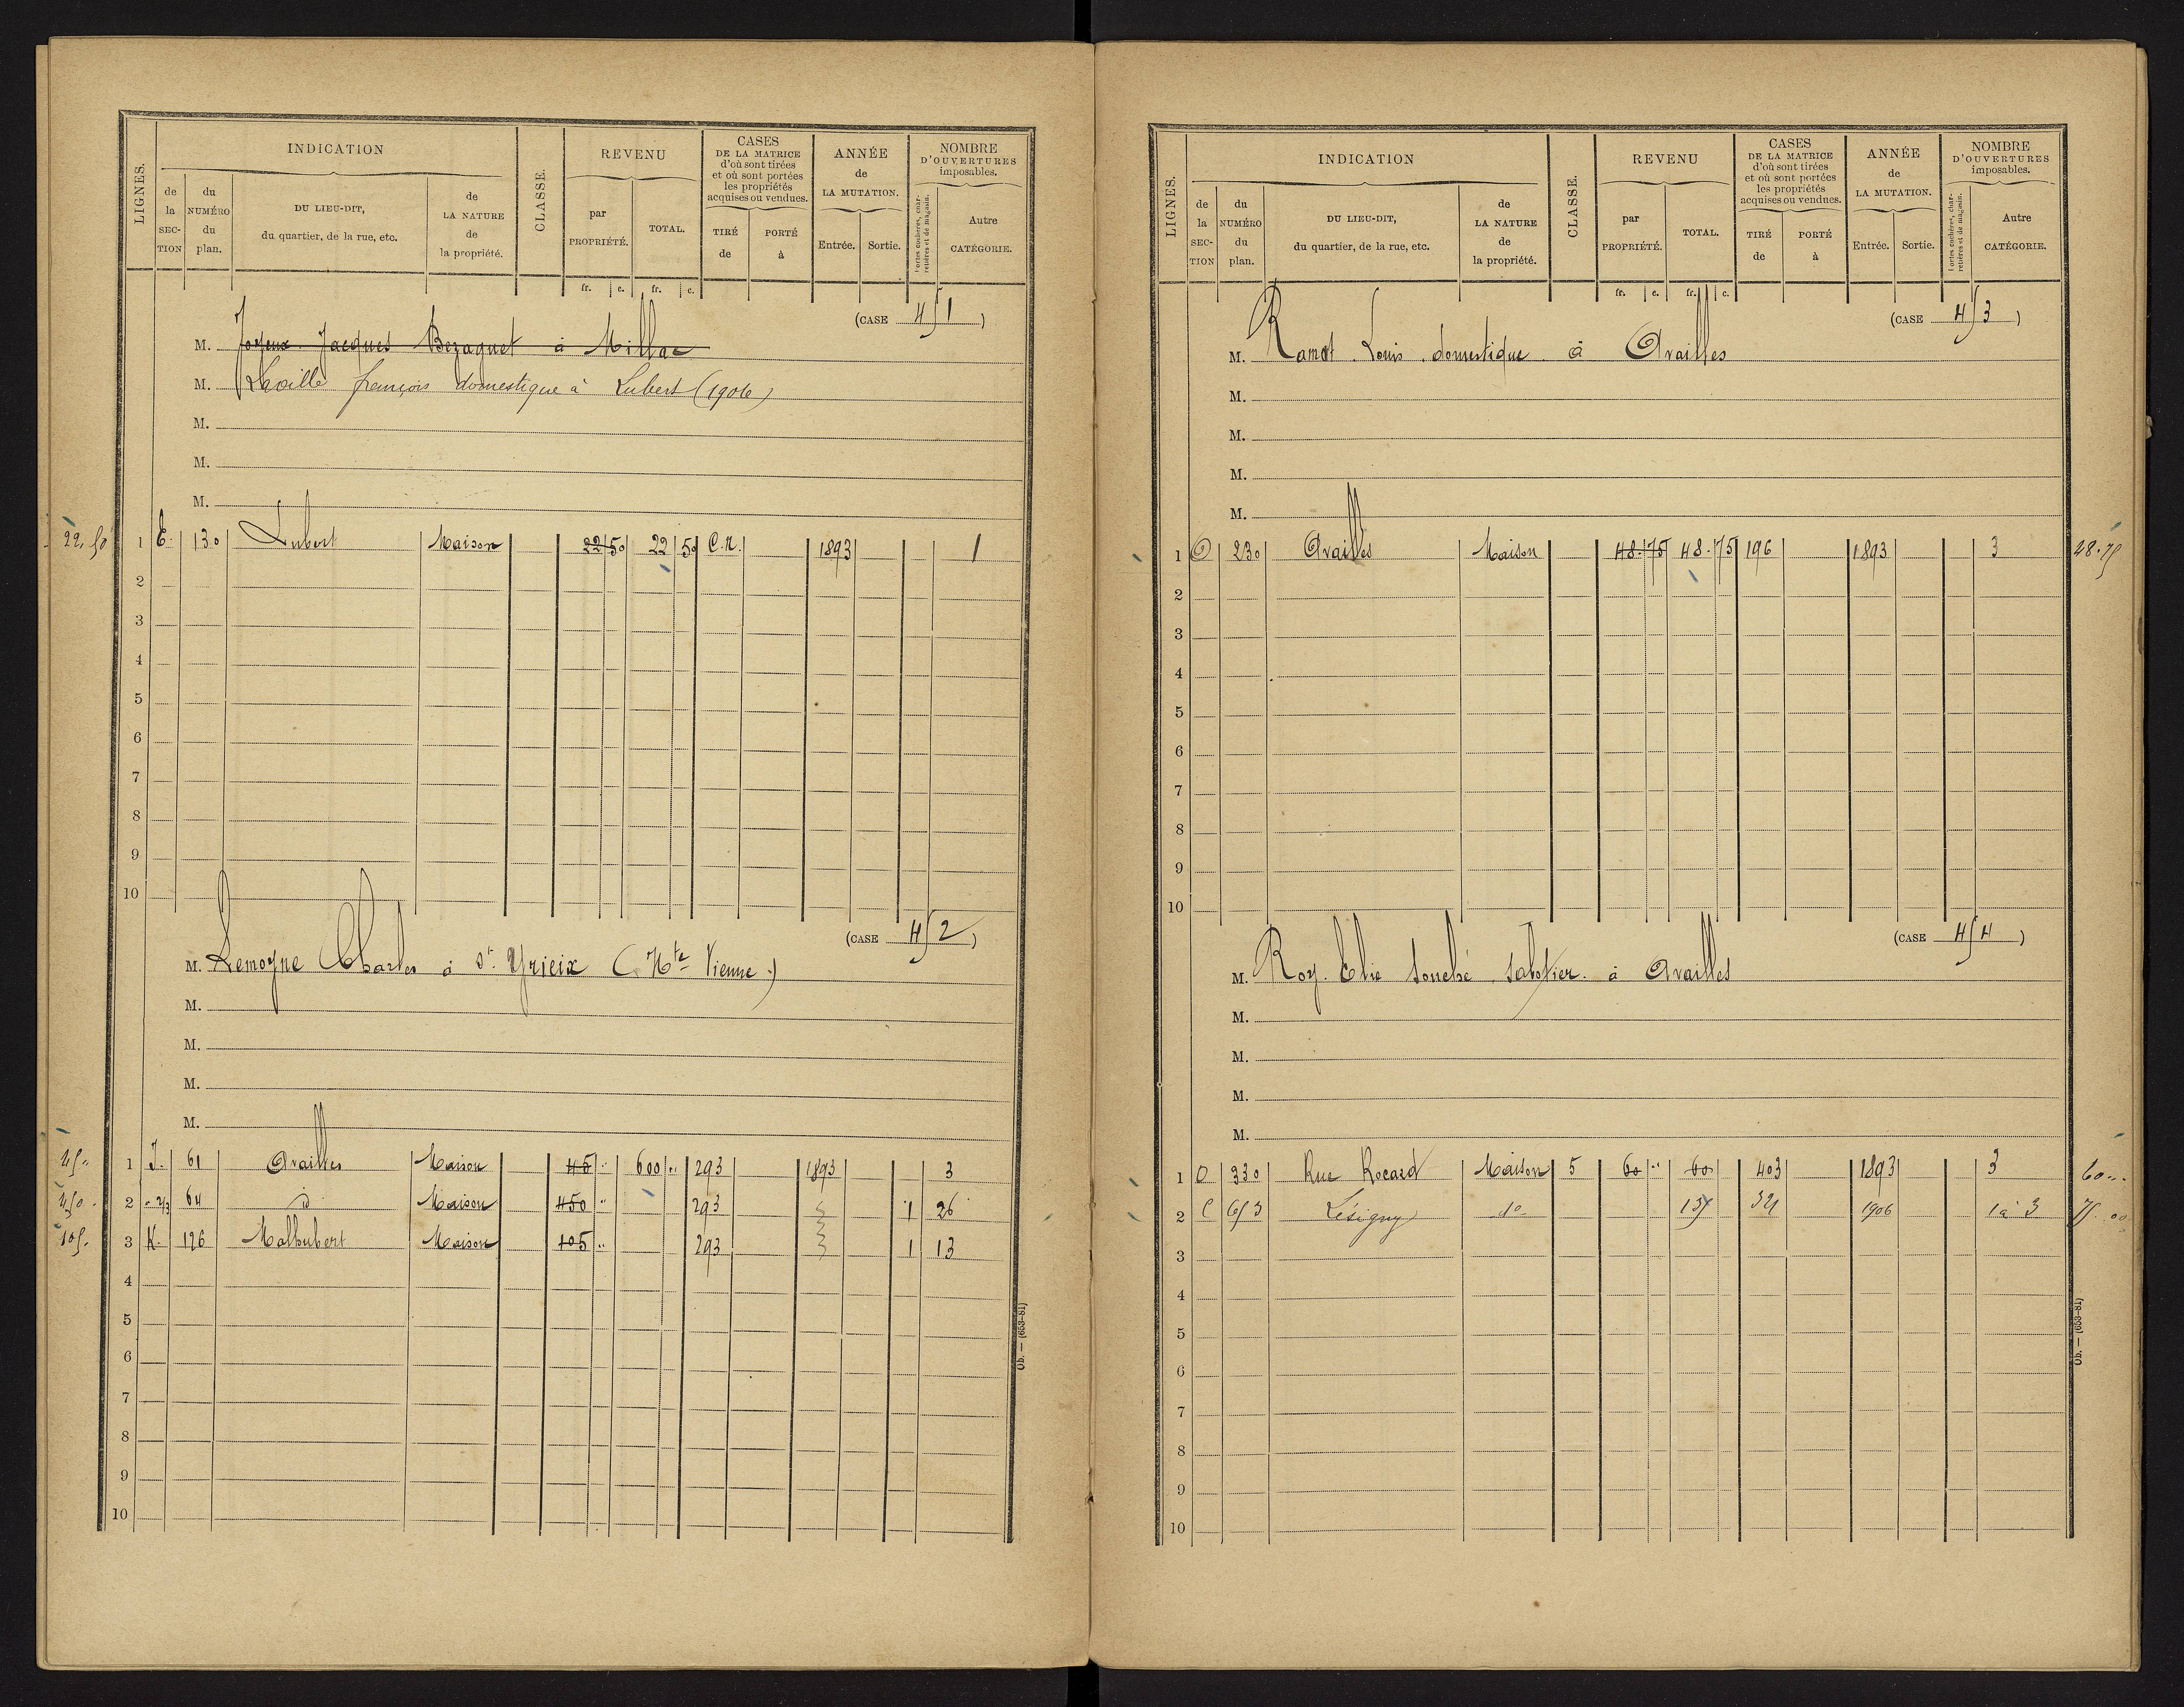 LIGNES.
INDICATION
de la SEC-TION
du NUMÉRO du plan.
DU LIEU-DIT, du quartier, de la rue, etc.
de LA NATURE de la propriété.
CLASSE.
REVENU
par PROPRIÉTÉ.
TOTAL.
CASES DE LA MATRICE d'où sont tirées et où sont portées les propriétés acquises ou vendues.
TIRÉ de
PORTÉ à
ANNÉE de LA MUTATION.
Entrée.
Sortie.
NOMBRE D'OUVERTURES imposables.
Portes cochères, charretières et de magasin.
Autre CATÉGORIE.
fr. c. fr. c.
(CASE 451)
M. Joyeux Jacques Bezaguet à Millac
M. Laville françois domestique à Lubert (1906)
M.
M.
M.
22,50 1 E. 130 Lubert Maison 22 50 22 50 C.N. 1893 1
2
3
4
5
6
7
8
9
10
(CASE 452)
M. Lemoyne Charles à St Yrieix (Hte Vienne.)
M.
M.
M.
M.
45 " 1 J. 61 Availles Maison 45 " 600 " 293 1893 3
450 - 2 " 2/3 64 id Maison 450 " 293 1 26
105. 3 K. 126 Malhubert Maison 105 " 293 1 13
4
5
6
7
8
9
10
Ob. — (653-81)
LIGNES.
INDICATION
de la SEC-TION
du NUMÉRO du plan.
DU LIEU-DIT, du quartier, de la rue, etc.
de LA NATURE de la propriété.
CLASSE.
REVENU
par PROPRIÉTÉ.
TOTAL.
CASES DE LA MATRICE d'où sont tirées et où sont portées les propriétés acquises ou vendues.
TIRÉ de
PORTÉ à
ANNÉE de LA MUTATION.
Entrée.
Sortie.
NOMBRE D'OUVERTURES imposables.
Portes cochères, charretières et de magasin.
Autre CATÉGORIE.
fr. c. fr. c.
(CASE 453)
M. Ramat Louis domestique à Availles
M.
M.
M.
M.
1 O 230 Availles Maison 48. 75 48. 75 196 1893 3 48.75
2
3
4
5
6
7
8
9
10
(CASE 454)
M. Roy Elie Souché sabotier à Availles
M.
M.
M.
M.
1 O 330 Rue Rocard Maison 5 60 " 60 403 1893 3 60 "
2 C 653 Lésigny do 135 321 1906 1 à 3 75 00
3
4
5
6
7
8
9
10
Ob. — (653-81)